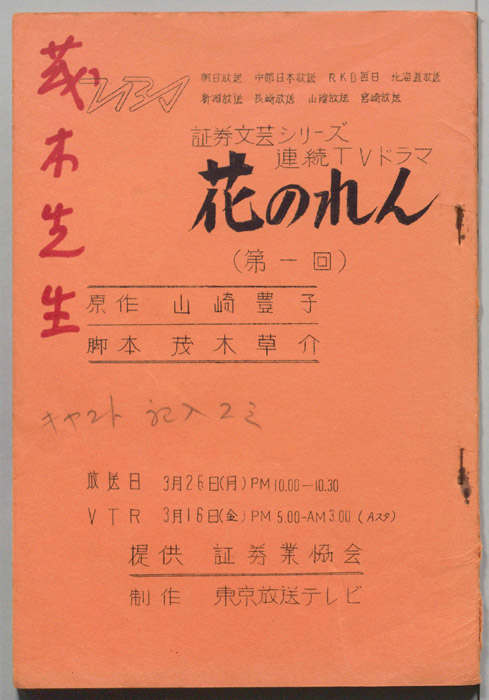 茂木先生
TBS
朝日放送 中部日本放送 RKB毎日 北海道放送
新潟放送 長崎放送 山陰放送 宮崎放送
証券文芸シリーズ
連続TVドラマ
花のれん
(第一回)
原作 山崎豊子
脚本 茂木草介
キャスト 記入スミ
放送日 3月26日(月) PM 10.00-10.30
VTR 3月16日(金) PM 5.00-AM 3.00 (Aスタ)
提供 証券業協会
制作 東京放送テレビ